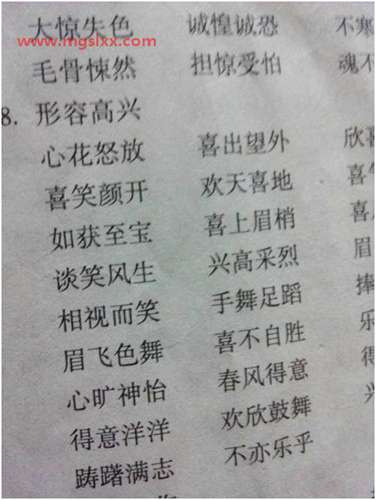 www.mgslxx.com
大惊失色 诚惶诚恐 不寒
毛骨悚然 担惊受怕 魂不
8. 形容高兴
心花怒放 喜出望外 欣
喜笑颜开 欢天喜地 喜
如获至宝 喜上眉梢 喜
谈笑风生 兴高采烈 眉
相视而笑 手舞足蹈 捧
眉飞色舞 喜不自胜 乐
心旷神怡 春风得意 得
得意洋洋 欢欣鼓舞
踌躇满志 不亦乐乎